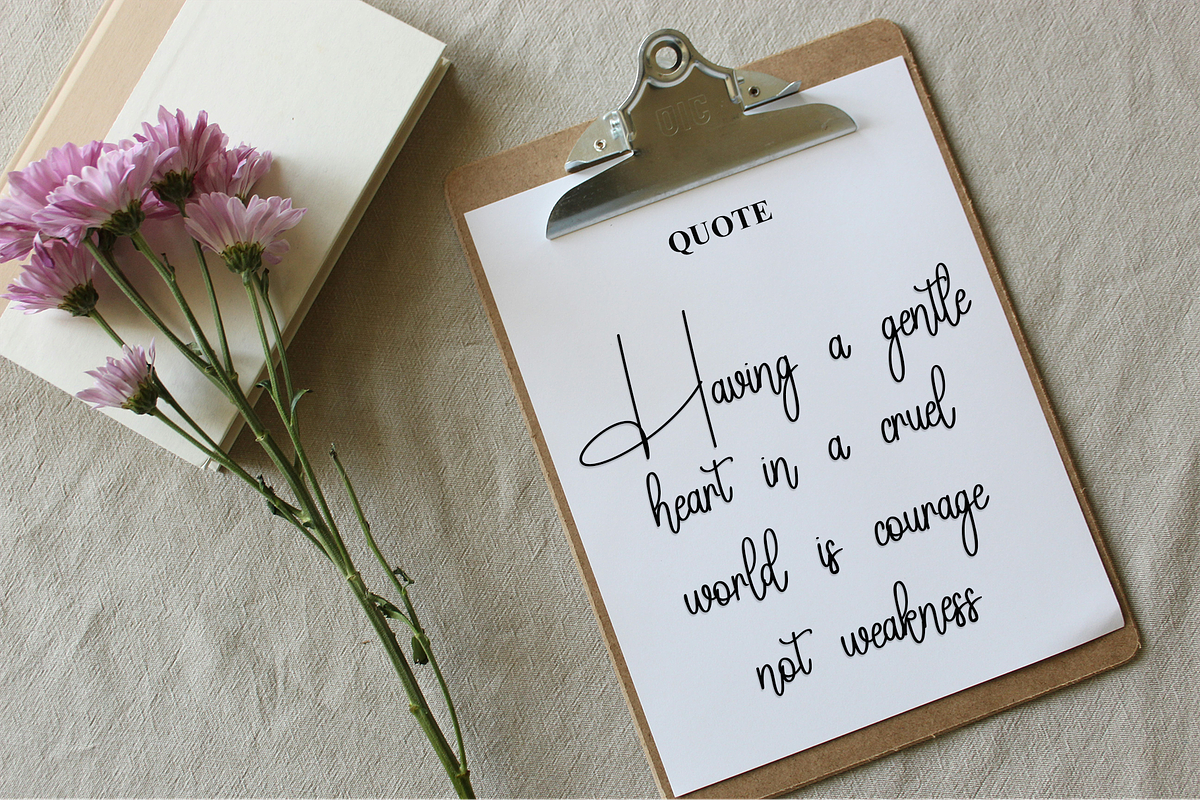 OIC
QUOTE
Having a gentle
heart in a cruel
world is courage
not weakness